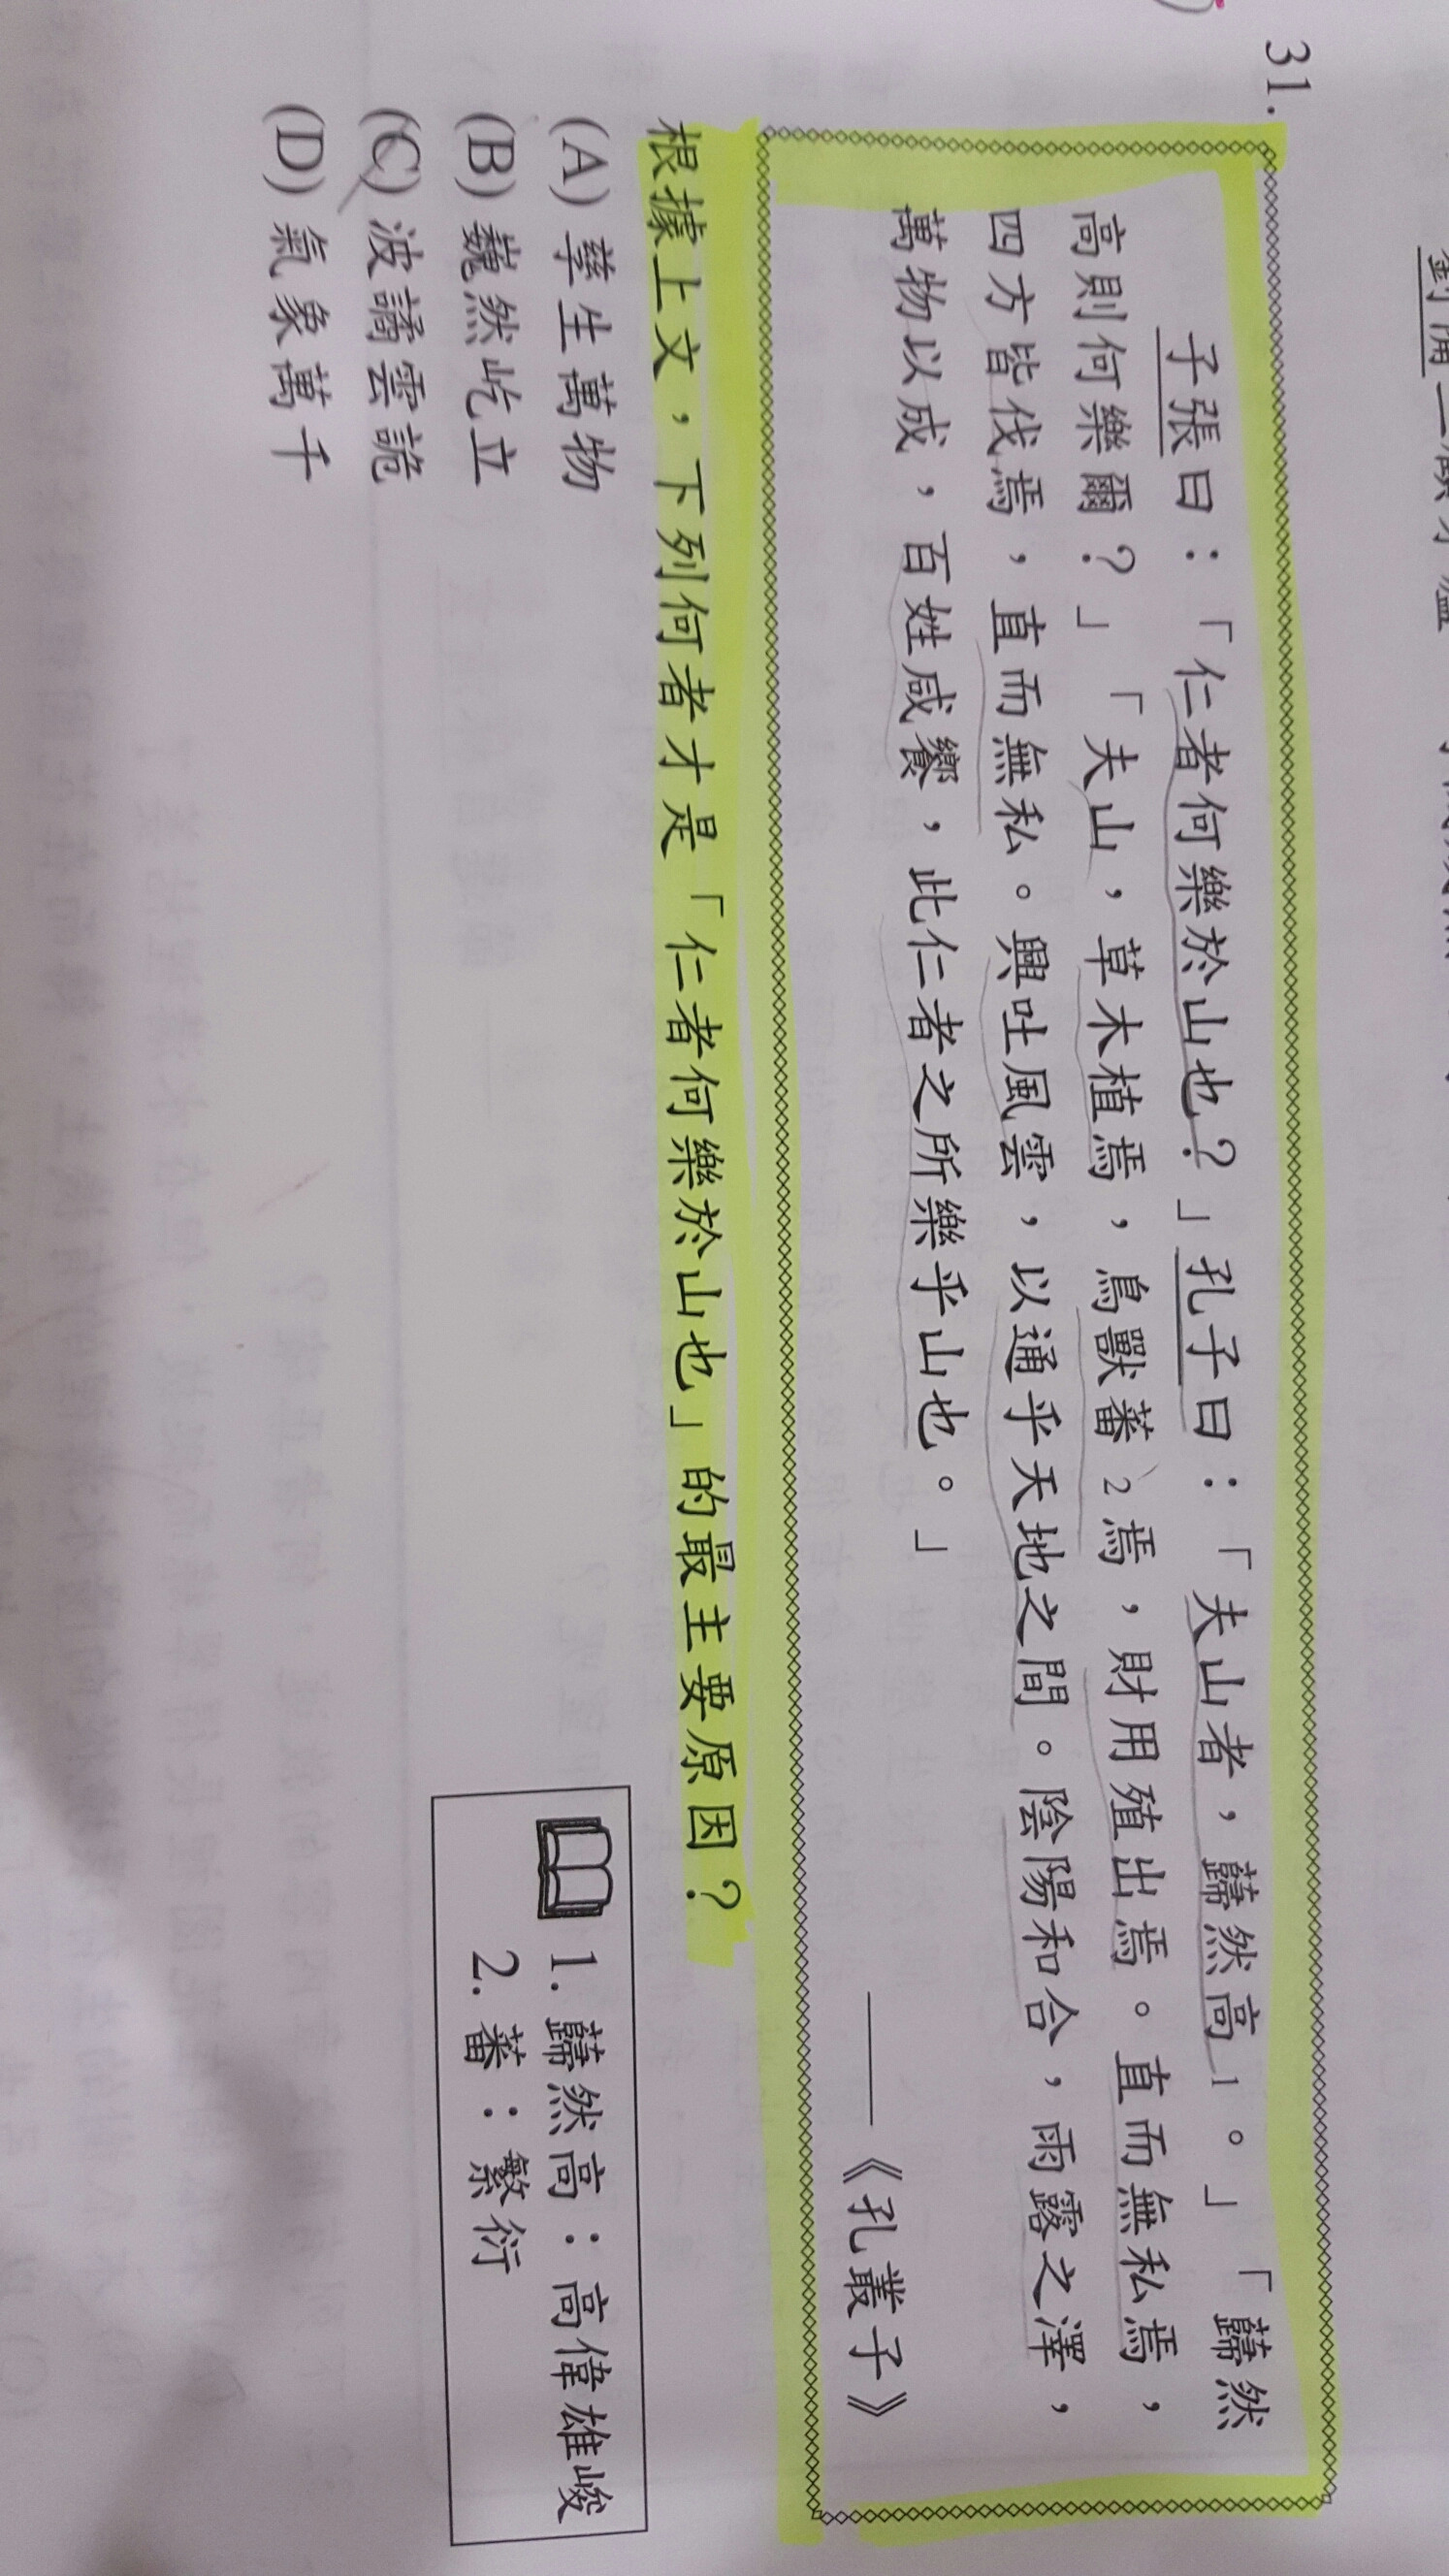 31.
子張曰：「仁者何樂於山也？」孔子曰：「夫山者，巋然高1。」「巋然
高則何樂爾？」「夫山，草木植焉，鳥獸蕃2焉，財用殖出焉。直而無私焉，
四方皆伐焉，直而無私。興吐風雲，以通乎天地之間。陰陽和合，雨露之澤，
萬物以成，百姓咸饗，此仁者之所樂乎山也。」
——《孔叢子》
根據上文，下列何者才是「仁者何樂於山也」的最主要原因？
(A) 孳生萬物
(B) 巍然屹立
(C) 波譎雲詭
(D) 氣象萬千
1. 巋然高：高偉雄峻
2. 蕃：繁衍